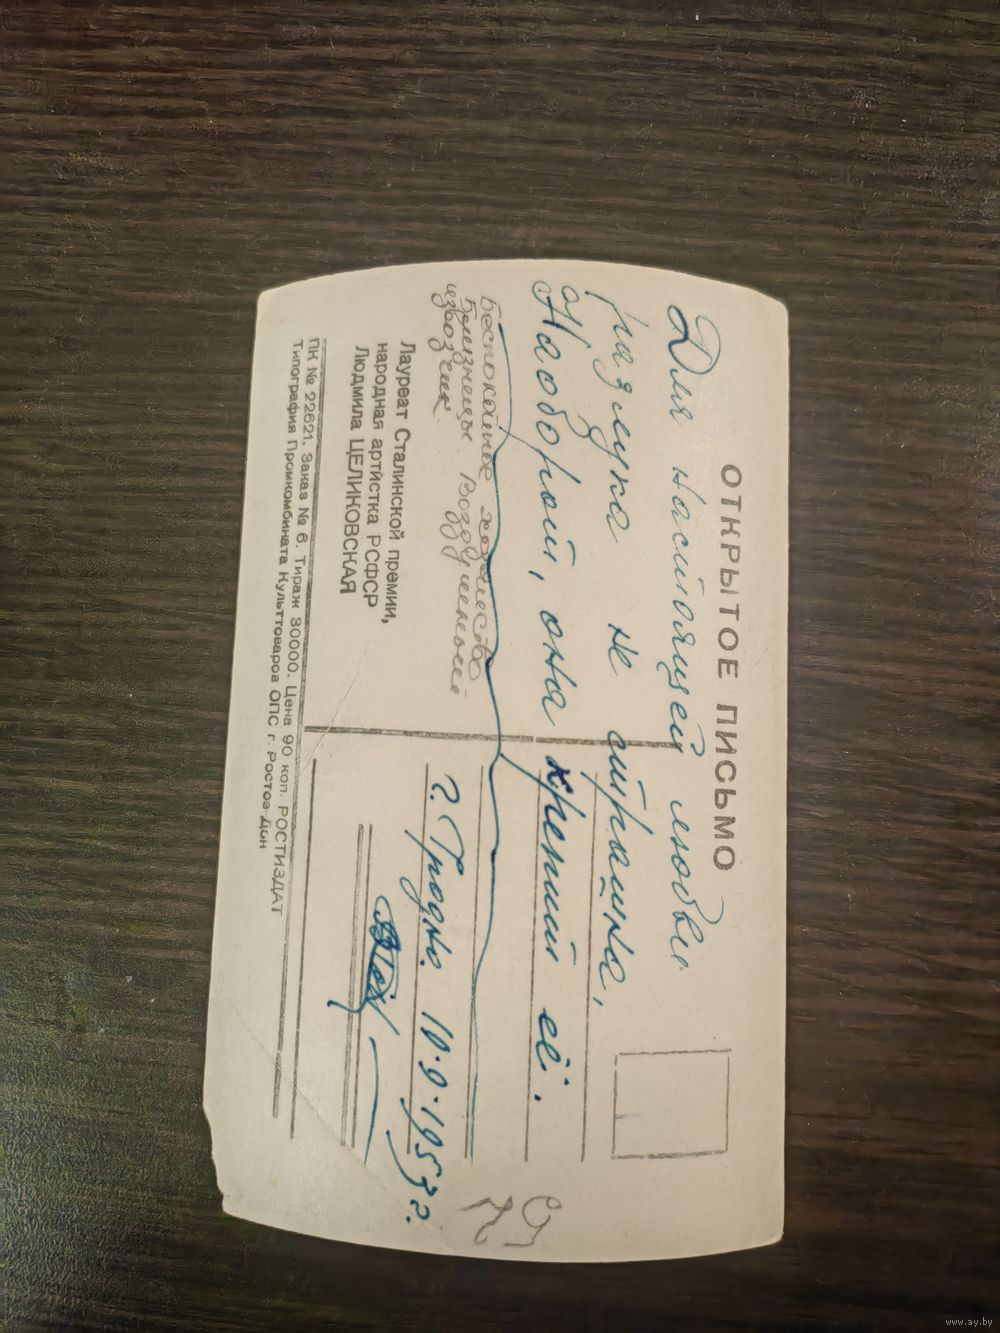 ОТКРЫТОЕ ПИСЬМО
Для настоящей любви
разлука не страшна,
Наоборот, она крепит её.
Беспокойное хозяйство
Близнецы. Воздушный
извозчик.
г. Гродно. 10.9.1953 г.
Лауреат Сталинской премии,
народная артистка РСФСР
Людмила ЦЕЛИКОВСКАЯ
ПК № 22621. Заказ № 6. Тираж 30000. Цена 90 коп. РОСТИЗДАТ
Типография Промкомбината Культтоваров ОПС г. Ростов-Дон
www.ay.by